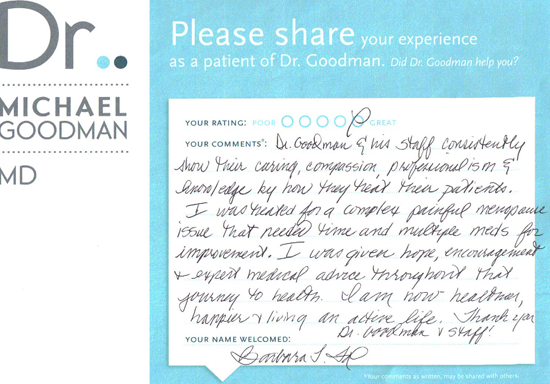 Dr..
MICHAEL
GOODMAN
MD
Please share your experience
as a patient of Dr. Goodman. Did Dr. Goodman help you?
YOUR RATING: POOR GREAT
YOUR COMMENTS*: Dr. Goodman & his staff consistently
show their caring, compassion, professionalism &
knowledge by how they treat their patients.
I was treated for a complex painful menopause
issue that needed time and multiple meds for
improvement. I was given hope, encouragement
+ expert medical advice throughout that
journey to health. I am now healthier,
happier + living an active life. Thank you
Dr. Goodman & staff!
YOUR NAME WELCOMED:
Barbara
*Your comments as written, may be shared with others.